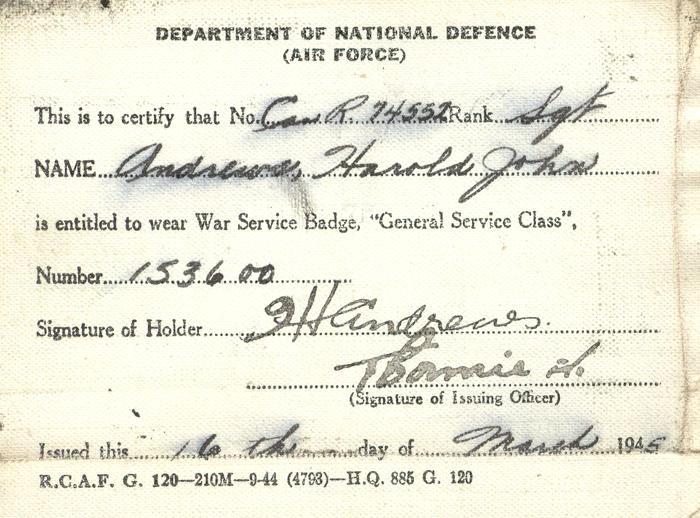 DEPARTMENT OF NATIONAL DEFENCE
(AIR FORCE)
This is to certify that No. Can R. 74552 Rank Sgt
NAME Andrews, Harold John
is entitled to wear War Service Badge, "General Service Class",
Number 153600
Signature of Holder HAndrews.
(Signature of Issuing Officer)
Issued this 16 th day of March 1945
R.C.A.F. G. 120—210M—9-44 (4793)—H.Q. 885 G. 120